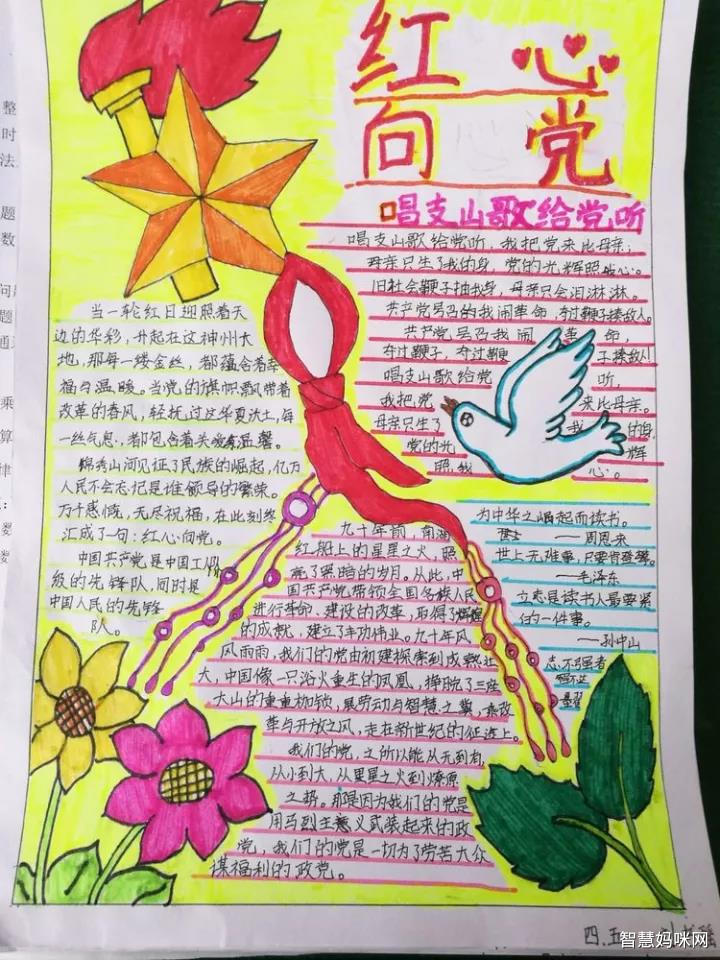 红心
向党
唱支山歌给党听
唱支山歌给党听，我把党来比母亲；
母亲只生了我的身，党的光辉照我心。
旧社会鞭子抽我身，母亲只会泪淋淋。
共产党号召我闹革命，夺过鞭子揍敌人。
共产党号召我闹革命，
夺过鞭子，夺过鞭子揍敌人！
唱支山歌给党听，
我把党来比母亲。
母亲只生了我的身，
党的光辉
照我心。
当一轮红日迎照着天
边的华彩，升起在这神州大
地，那每一缕金丝，都蕴含着幸
福与温暖。当党的旗帜飘带着
改革的春风，轻抚过这华夏沃土，每
一丝气息，都包含着关爱温馨。
锦秀山河见证了民族的崛起，亿万
人民不会忘记是谁领导的繁荣。
万千感慨，无尽祝福，在此刻终
汇成了一句：红心向党。
中国共产党是中国工人阶
级的先锋队，同时是
中国人民的先锋
队。
为中华之崛起而读书。
——周恩来
世上无难事，只要肯登攀。
——毛泽东
立志是读书人最要紧
的一件事。
——孙中山
志不强者
智不达
墨翟
九十年前，南湖
红船上的星星之火，照
亮了黑暗的岁月。从此，中
国共产党带领全国各族人民
进行革命、建设的改革，取得了辉煌
的成就，建立了丰功伟业。九十年风
风雨雨，我们的党由初建探索到成熟壮
大，中国像一只浴火重生的凤凰，挣脱了三座
大山的重重枷锁，展劳动与智慧之翼，乘改
革与开放之风，走在新世纪的征途上。
我们的党，之所以能从无到有，
从小到大，从星星之火到燎原
之势，那是因为我们的党是
用马列主义武装起来的政
党，我们的党是一切为了劳苦大众
谋福利的政党。
四.五
智慧妈咪网
整
时
法
题
数
问
题
通
乘
算
律